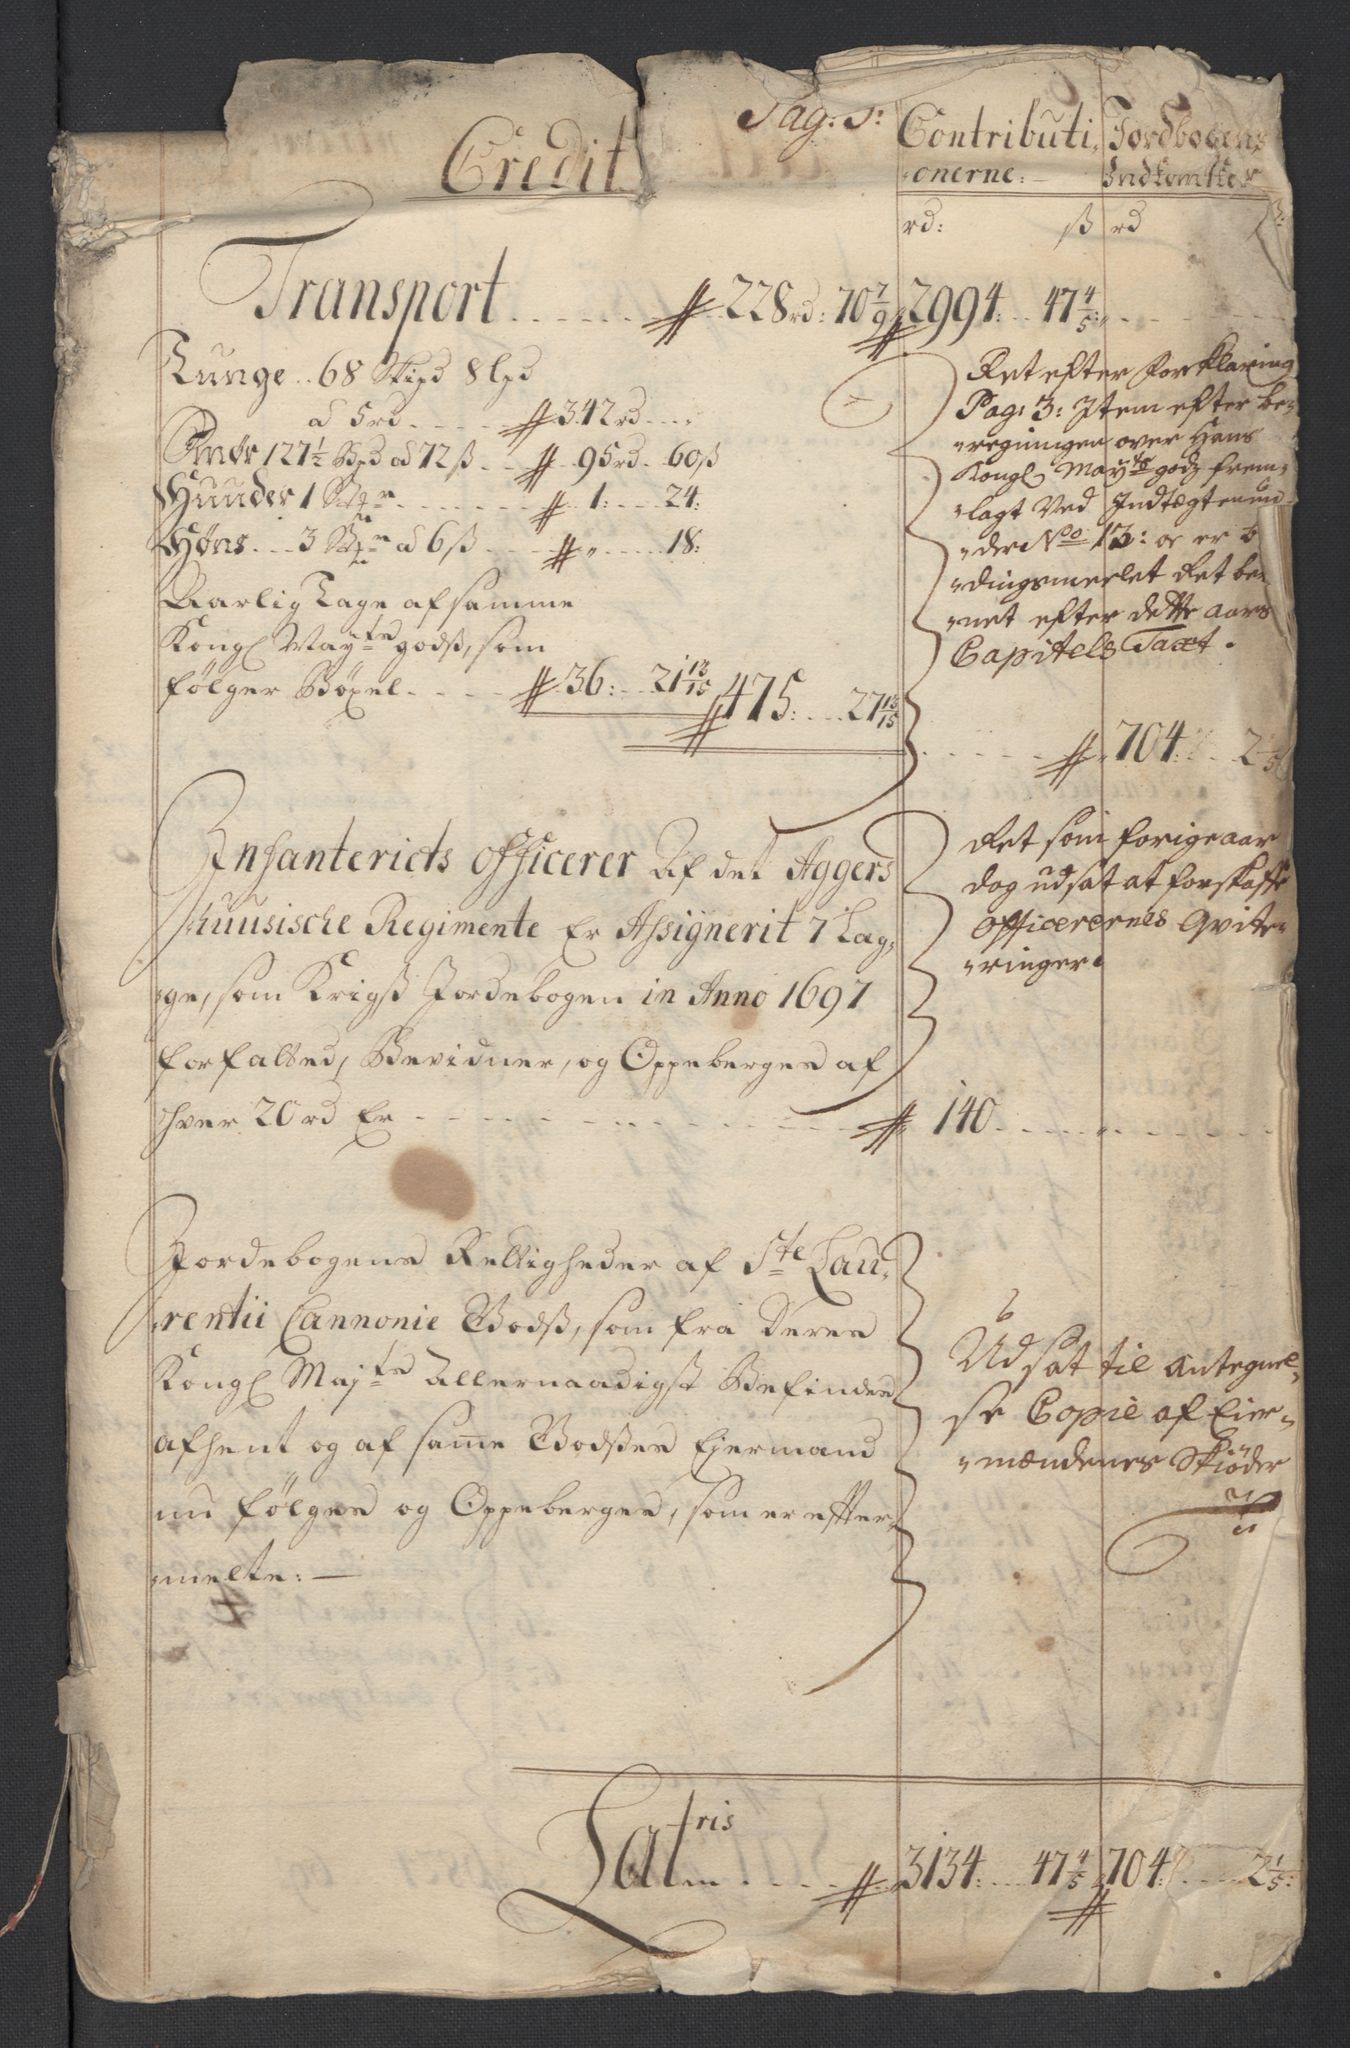 Pag: 5:
Credit
Contributi-
onerne:
Jordbogens
Indkomster
rd: ß rd
Transport 228rd: 70 7/9 2994: 47 4/5:
Tunge 68 Skipd 8 lpd
a 5rd 342rd
Smør 127 1/2 Bpd ad 72ß 95rd 60ß
Huuder 1 1: 24:
Høns 3 ad 6ß 18:
Aarlig Tage af samme
Kongl Maytz godß, som
følger Bøxel 36: 21 13/15 475: 27 13/15
Ret efter forklaring
Pag: 3: Item efter be-
regningen over Hans
Kongl Maytz godz frem-
lagt Ved Indtegten un-
der No 13: oc er
dingsmerlet Ret be
net efter dette aars
Capitels Taxt.
704: 2 1/5
Infanteriets officerer Af det Aggers
huusische Regimente Er Assignerit 7 Læg-
ge, som Krigß Jordebogen in Anno 1697
forfatted, Bevidner, og Oppeberges af
hver 20rd Er 140
Ret som forige aar
dog udsat at forskaffe
officerernes Qvite-
ringer.
Jordebogens Rettigheder af Ste Lau-
rentii Cannonie Godß, som fra Deres
Kongl Maytz Allernaadigst Befindes
afhent og af same Godßes Ejermand
nu følges og Oppeberges, som er effter-
melte:
6
Udsat til antegnel-
se Copie af Eier-
mændenes Skiøder
Latris 3134: 47 4/5 704: 2 1/5: